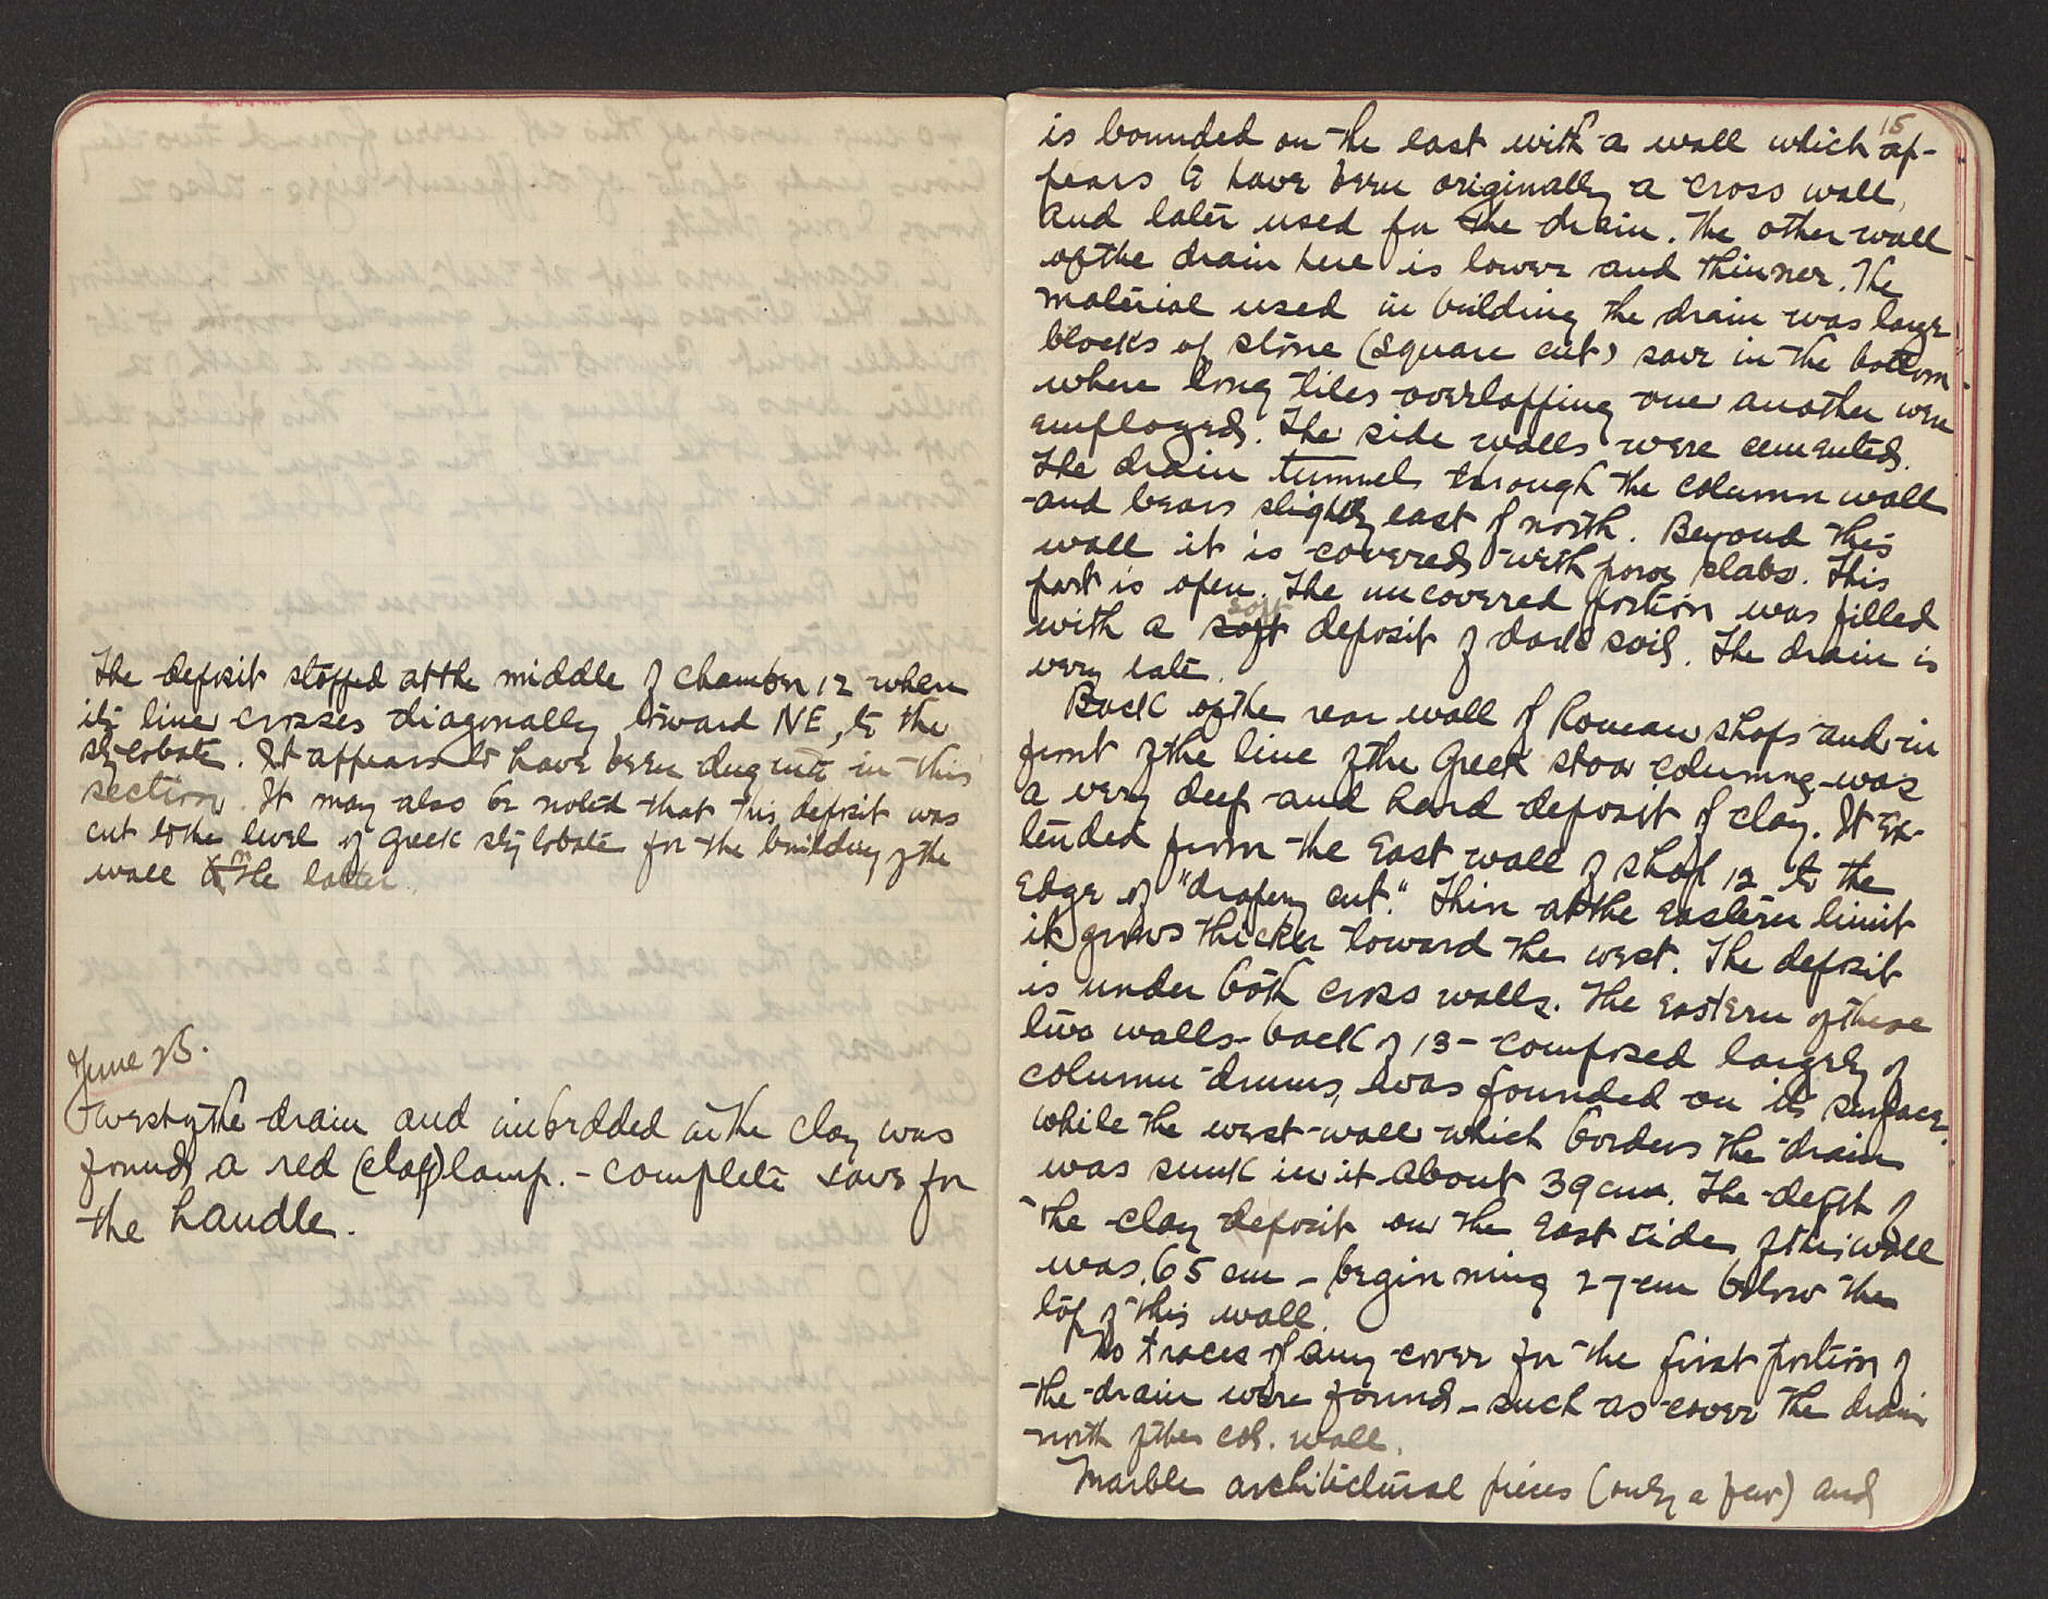 The deposit stopped at the middle of chamber 12 when
its line crosses diagonally toward NE, to the
stylobate. It appears to have been dug into in this
section. It may also be noted that this deposit was
cut to the level of Greek stylobate for the building of the
wall for the latter.
June 25.
West of the drain and imbedded in the clay was
found a red (clay) lamp. - complete save for
the handle.
15
is bounded on the east with a wall which ap-
pears to have been originally a cross wall,
and later used for the drain. The other wall
of the drain here is lower and thinner. The
material used in building the drain was large
blocks of stone (square cut) save in the bottom
where long tiles overlapping one another were
employed. The side walls were cemented.
The drain tunnels through the column wall
and bears slightly east of north. Beyond this
wall it is covered with poros slabs. This
part is open. The uncovered portion was filled
with a soft deposit of dark soil. The drain is
very late.
Back of the rear wall of Roman shops and in
front of the line of the Greek stoa columns was
a very deep and hard deposit of clay. It ex-
tended from the East wall of shop 12 to the
Edge of "drapery cut." Thin at the Eastern limit
it grows thicker toward the west. The deposit
is under both cross walls. The Eastern of these
two walls - back of 13 - composed largely of
column drums, was founded on its surface,
while the west wall which borders the drain
was sunk in it about 39 cm. The depth of
the clay deposit on the East side of this wall
was .65 cm - beginning 27 cm below the
top of this wall.
No traces of any cover for the first portion of
the drain were found - such as cover the drain
north of the col. wall.
Marble architectural pieces (only a few) and